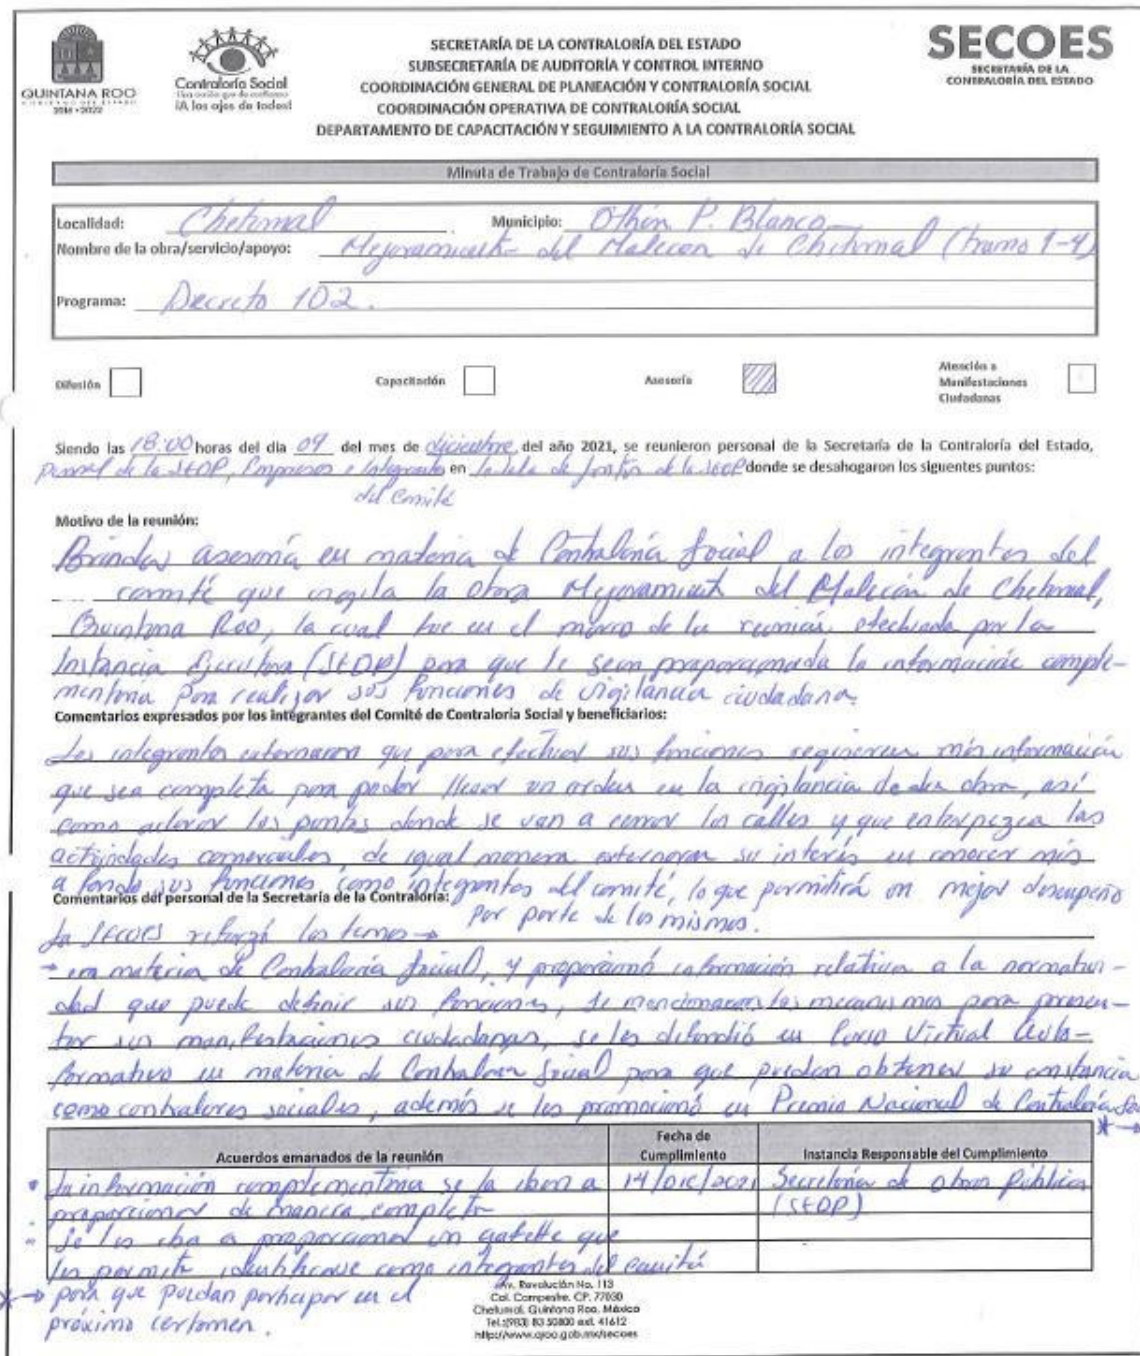 QUINTANA ROO
GOBIERNO DEL ESTADO
2016 • 2022
Contraloría Social
¡A los ojos de todos!
SECRETARÍA DE LA CONTRALORÍA DEL ESTADO
SUBSECRETARÍA DE AUDITORÍA Y CONTROL INTERNO
COORDINACIÓN GENERAL DE PLANEACIÓN Y CONTRALORÍA SOCIAL
COORDINACIÓN OPERATIVA DE CONTRALORÍA SOCIAL
DEPARTAMENTO DE CAPACITACIÓN Y SEGUIMIENTO A LA CONTRALORÍA SOCIAL
SECOES
SECRETARÍA DE LA
CONTRALORÍA DEL ESTADO
Minuta de Trabajo de Contraloría Social
Localidad: Chetumal Municipio: Othón P. Blanco
Nombre de la obra/servicio/apoyo: Mejoramiento del Malecón de Chetumal (tramo 1-4)
Programa: Decreto 102.
Difusión Capacitación Asesoría Atención a
Manifestaciones
Ciudadanas
Siendo las 18:00 horas del día 09 del mes de diciembre del año 2021, se reunieron personal de la Secretaría de la Contraloría del Estado,
personal de la SEOP, Empresas e Integrantes en la sala de juntas de la SEOP donde se desahogaron los siguentes puntos:
del Comité
Motivo de la reunión:
Brindar asesoría en materia de Contraloría Social a los integrantes del
comité que vigila la obra Mejoramiento del Malecón de Chetumal,
Quintana Roo, la cual fue en el marco de la reunión efectuada por la
Instancia Ejecutora (SEOP) para que le sean proporcionada la información comple-
mentaria para realizar sus funciones de vigilancia ciudadana.
Comentarios expresados por los integrantes del Comité de Contraloría Social y beneficiarios:
Los integrantes externaron que para efectuar sus funciones requieren más información
que sea completa para poder llevar un orden en la vigilancia de la obra, así
como aclarar los puntos donde se van a cerrar las calles y que entorpezca las
actividades comerciales, de igual manera externaron su interés en conocer más
a fondo sus funciones como integrantes del comité, lo que permitirá un mejor desempeño
por parte de los mismos.
Comentarios del personal de la Secretaría de la Contraloría:
La SECOES reforzó los temos →
→ en materia de Contraloría Social, y proporcionó información relativa a la normativi-
dad que puede definir sus funciones, se mencionaron los mecanismos para presen-
tar sus manifestaciones ciudadanas, se les difundió en Curso Virtual Auto-
formativo en materia de Contraloría Social para que puedan obtener su constancia
como contralores sociales, además se les promocionó en Premio Nacional de Contraloría Soc
* →
Acuerdos emanados de la reunión Fecha de Cumplimiento Instancia Responsable del Cumplimiento
• La información complementaria se la iban a 14/DIC/2021 Secretaría de Obras Públicas
proporcionar de manera completa (SEOP)
Se les iba a proporcionar un gafette que
les permita identificarse como integrantes del comité
* → para que puedan participar en el
próximo certamen.
Av. Revolución No. 113
Col. Campestre, CP. 77030
Chetumal, Quintana Roo, México
Tel.:(983) 83 50800 ext. 41612
http://www.qroo.gob.mx/secoes